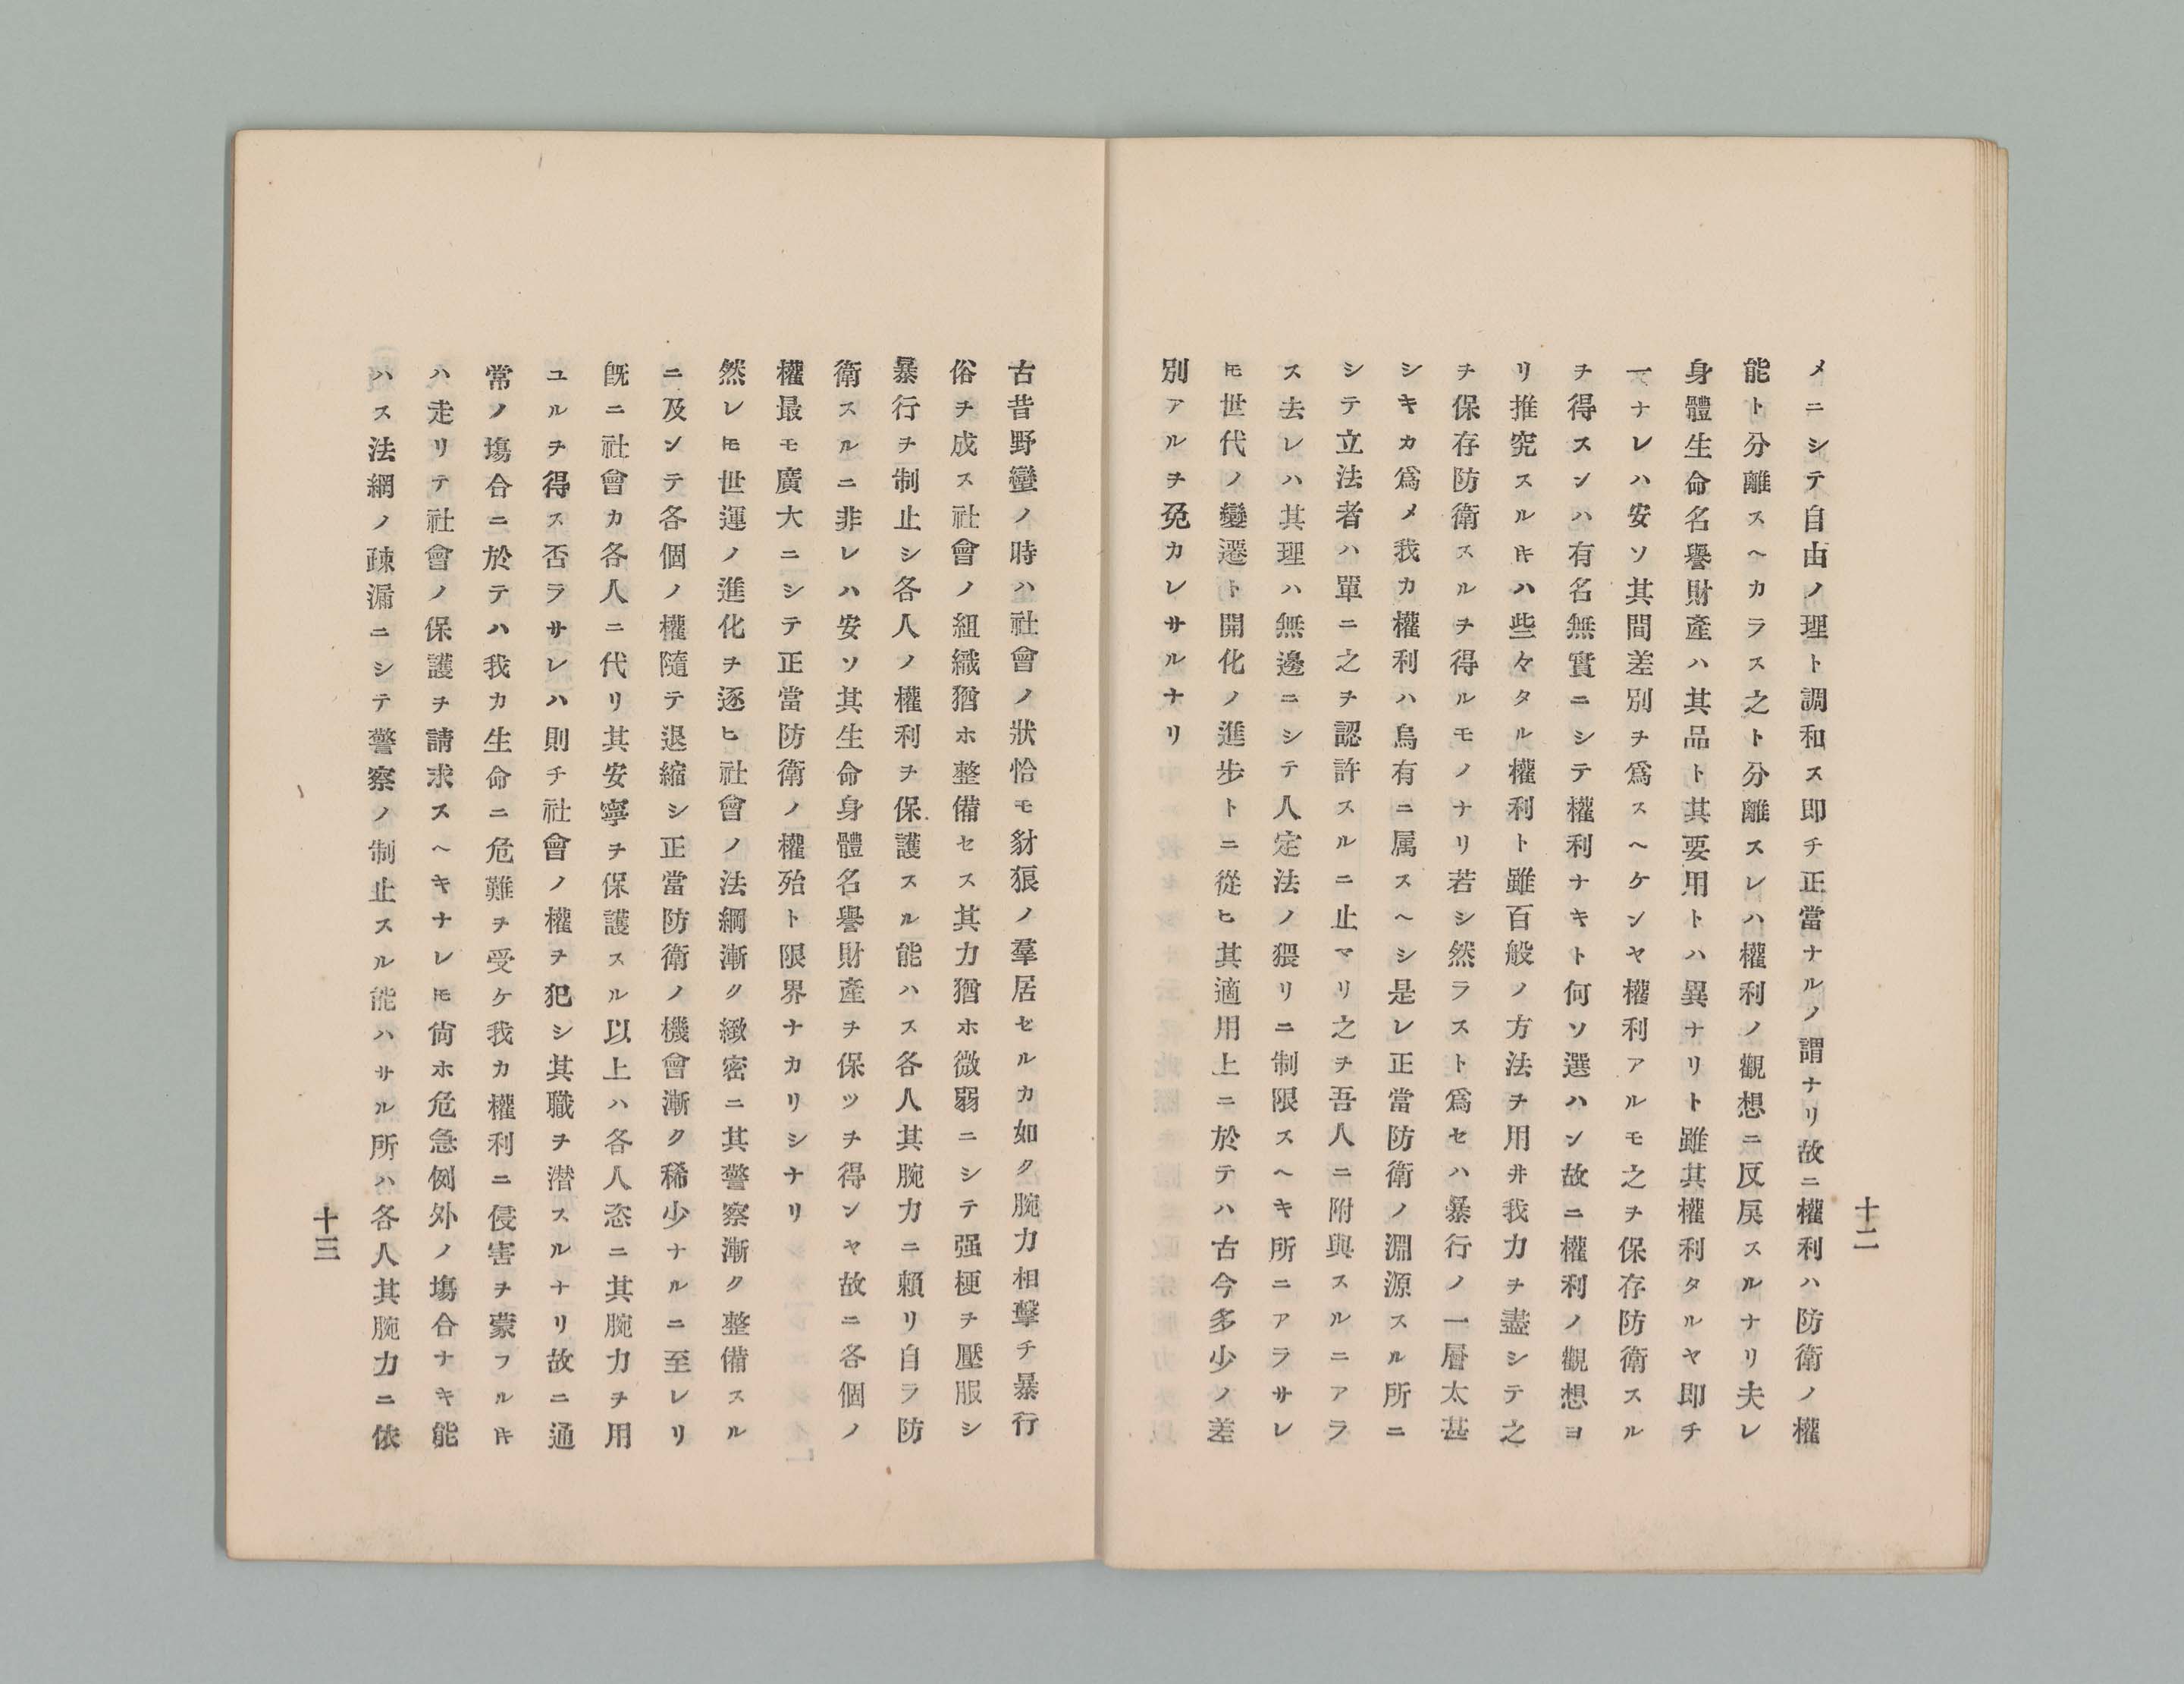 十二
メニシテ自由ノ理ト調和ス即チ正當ナルノ謂ナリ故ニ權利ハ防衛ノ權
能ト分離スヘカラス之ト分離スレハ權利ノ觀想ニ反戻スルナリ夫レ
身體生命名譽財產ハ其品ト其要用トハ異ナリト雖其權利タルヤ即チ
一ナレハ安ソ其間差別ヲ爲スヘケンヤ權利アルモ之ヲ保存防衛スル
ヲ得スンハ有名無實ニシテ權利ナキト何ソ選ハン故ニ權利ノ觀想ヨ
リ推究スルㇰハ些々タル權利ト雖百般ノ方法ヲ用井我力ヲ盡シテ之
ヲ保存防衛スルヲ得ルモノナリ若シ然ラスト爲セハ暴行ノ一層太甚
シキカ爲メ我カ權利ハ烏有ニ属スヘシ是レ正當防衛ノ淵源スル所ニ
シテ立法者ハ單ニ之ヲ認許スルニ止マリ之ヲ吾人ニ附與スルニアラ
ス去レハ其理ハ無邊ニシテ人定法ノ猥リニ制限スヘキ所ニアラサレ
𪜈世代ノ變遷ト開化ノ進歩トニ從ヒ其適用上ニ於テハ古今多少ノ差
別アルヲ免カレサルナリ
古昔野蠻ノ時ハ社會ノ狀恰モ豺狼ノ羣居セルカ如ク腕力相擊チ暴行
俗ヲ成ス社會ノ組織猶ホ整備セス其力猶ホ微弱ニシテ强梗ヲ壓服シ
暴行ヲ制止シ各人ノ權利ヲ保護スル能ハス各人其腕力ニ賴リ自ラ防
衛スルニ非レハ安ソ其生命身體名譽財產ヲ保ツヲ得ンヤ故ニ各個ノ
權最モ廣大ニシテ正當防衛ノ權殆ト限界ナカリシナリ
然レ𪜈世運ノ進化ヲ逐ヒ社會ノ法綱漸ク緻密ニ其警察漸ク整備スル
ニ及ンテ各個ノ權隨テ退縮シ正當防衛ノ機會漸ク稀少ナルニ至レリ
旣ニ社會カ各人ニ代リ其安寧ヲ保護スル以上ハ各人恣ニ其腕力ヲ用
ユルヲ得ス否ラサレハ則チ社會ノ權ヲ犯シ其職ヲ潜スルナリ故ニ通
常ノ塲合ニ於テハ我カ生命ニ危難ヲ受ケ我カ權利ニ侵害ヲ蒙フルㇰ
ハ走リテ社會ノ保護ヲ請求スヘキナレ𪜈尙ホ危急例外ノ塲合ナキ能
ハス法網ノ疎漏ニシテ警察ノ制止スル能ハサル所ハ各人其腕力ニ依
十三